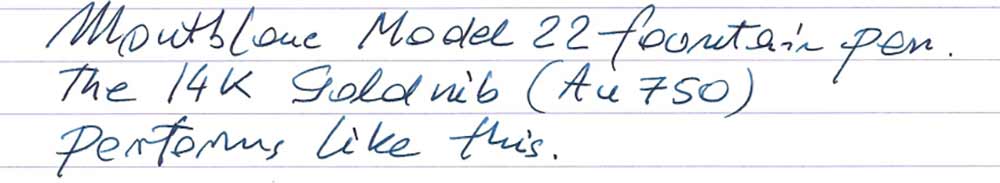 Montblanc Model 22 fountain pen.
The 14K Gold nib (Au 750)
performs like this.